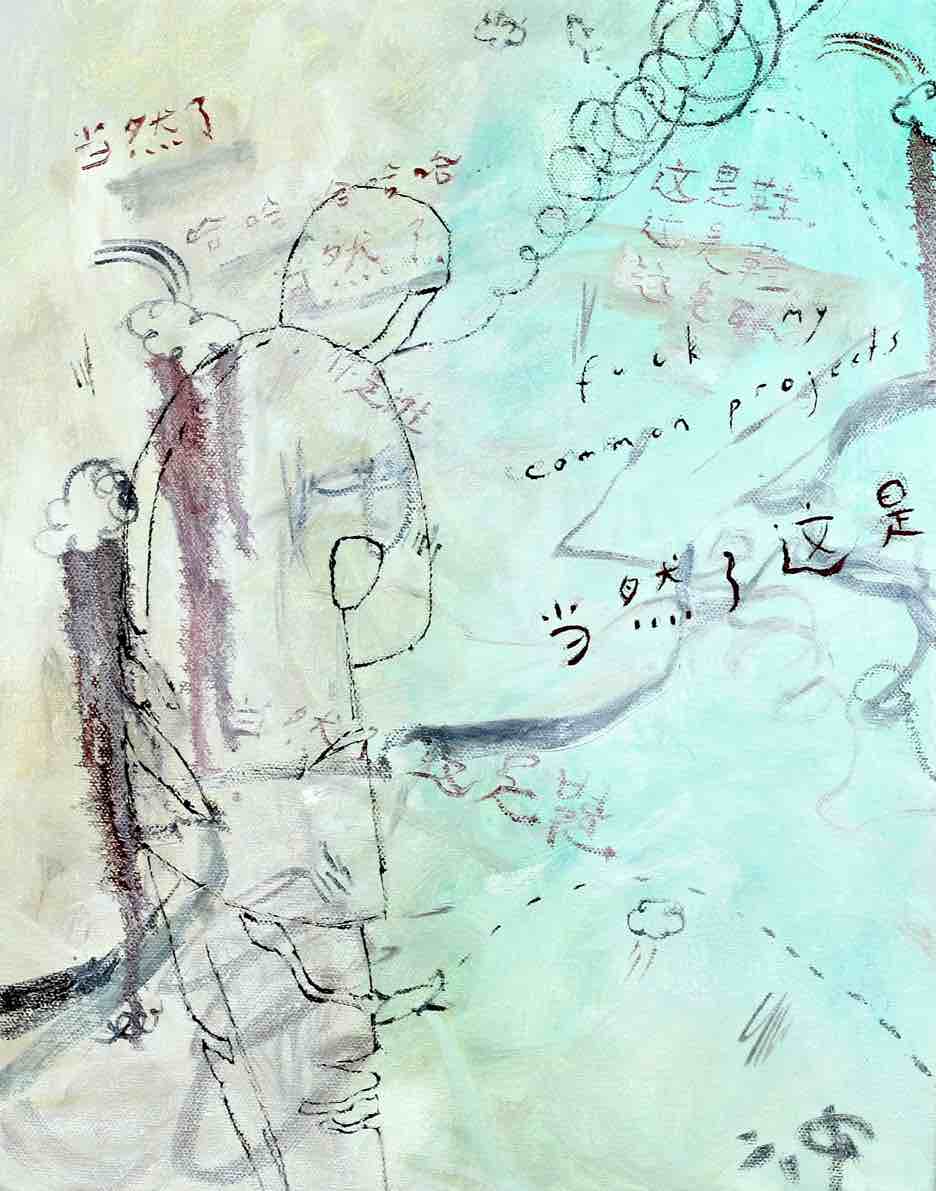 当然了
哈哈哈哈哈
然了
这是鞋
这是鞋
这是
my
fuck
common projects
当然了这是
当然了
这是鞋